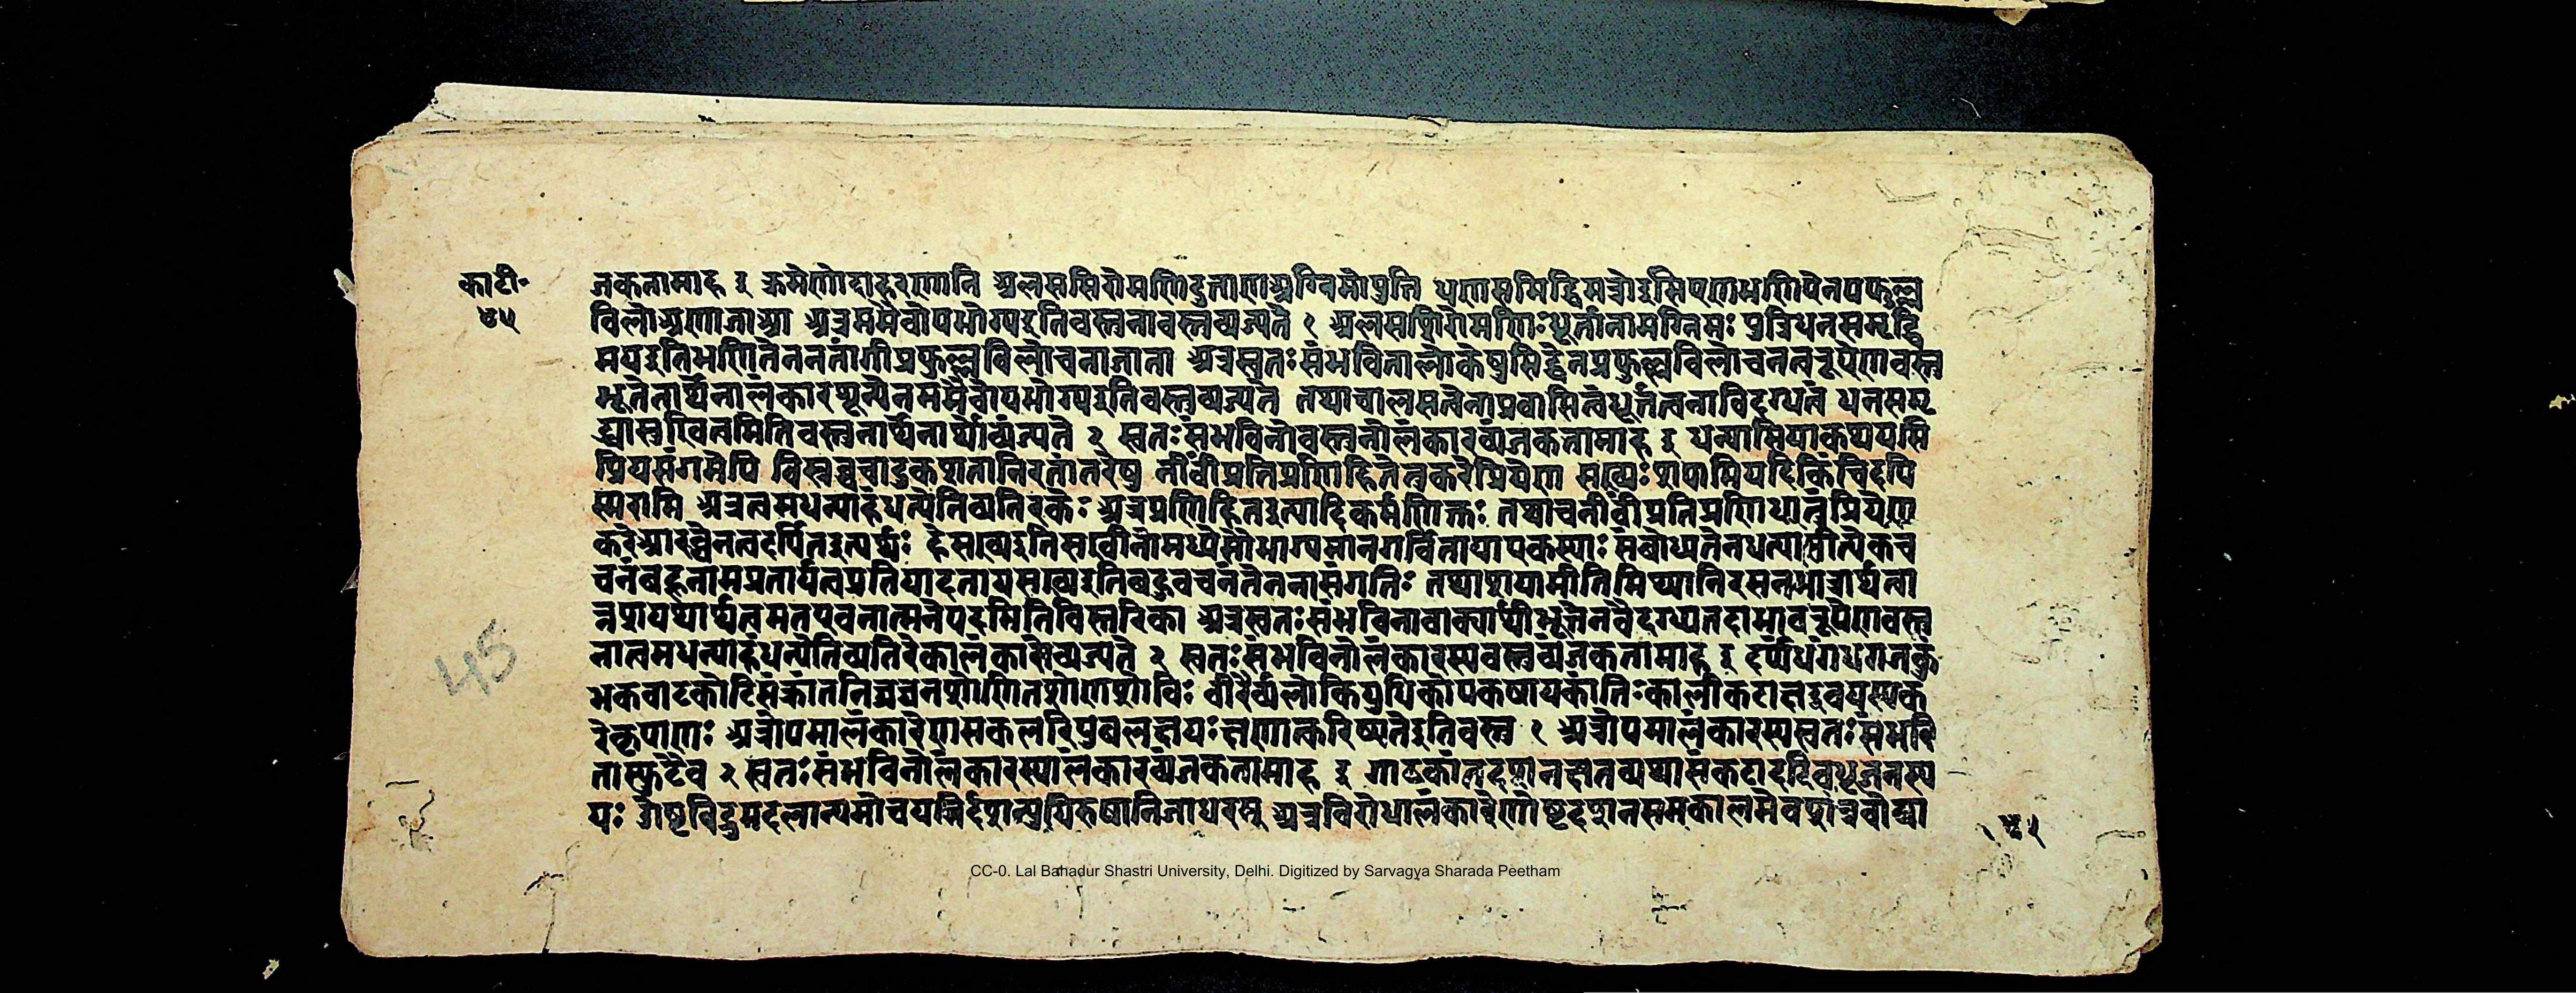 काटी॰
४५
जकतामाह इ क्रमेणोदाहरणानि अलससिरोमणिदुत्ताणअग्गिमोपुत्ति धणसमिद्धिमओइसिएणभणिएनपप्फुल्ल
विलोअणाजाआ अत्रममैवोपभोग्यइतिवस्तुनावस्तुव्यज्यते १ अलसशिरोमणिःधूर्तानामग्रिमः पुत्रिधनसमृद्धि
मयइतिभणितेननतांगीप्रफुल्लविलोचनाजाता अत्रस्वतःसंभविनालोकेषुसिद्धेनप्रफुल्लविलोचनत्वरूपेणवस्तु
भूतेनार्थेनालंकारशून्येनममैवोपभोग्यइतिवस्तुव्यज्यते तथाचालसत्वेनाप्रवासित्वंधूर्तत्वेनाविदग्धत्वं धनसमृ
द्ध्यासुखित्वमितिवस्तुनार्थेनार्थोव्यंज्यते २ स्वतःसंभविनोवस्तुनोलंकारव्यंजकतामाह इ धन्यासियाकथयसि
प्रियसंगमेपि विस्रब्धचाटुकशतानिरतांतरेषु नीवींप्रतिप्रणिहितेतुकरेप्रियेण सख्यःशपामियदिकिंचिदपि
स्मरामि अत्रत्वमधन्याहंधन्येतिव्यतिरेकः अत्रप्रणिहितइत्यादिकर्मणिक्तः तथाचनीवींप्रतिप्रणिधानंप्रियेण
करेआरब्धेनतदर्पितइत्यर्थः हेसख्यइतिसखीनांमध्येसौभाग्यमानगर्वितायाएकस्याः संबोध्यत्वेनधन्यासीत्येकव
चनंबहूनामप्रतार्यत्वप्रतिपादनायसख्यइतिबहुवचनंतेननासंगतिः तथाशपामीतिमिथ्यानिरसनमात्रार्थत्वा
न्नशपथार्थत्वमतएवनात्मनेपदमितिविस्तरिका अत्रस्वतःसंभविनावाक्यार्थीभूतेनवैदग्ध्यतदाभावरूपेणवस्तु
नात्वमधन्याहंधन्येतिव्यतिरेकालंकारोव्यज्यते २ स्वतःसंभविनोलंकारस्यवस्तुव्यंजकतामाह इ दर्पांधगंधगजकुं
भकवाटकोटिसंक्रांतनिघ्नघनशोणितशोणशोचिः वीरैर्व्यलोकियुधिकोपकषायकांतिःकालीकटाक्षइवयस्यक
रेकृपाणः अत्रोपमालंकारेणसकलरिपुबलक्षयःक्षणात्करिष्यतेइतिवस्तु १ अत्रोपमालंकारस्यस्वतःसंभवि
तास्फुटैव २ स्वतःसंभविनोलंकारस्यालंकारव्यंजकतामाह इ गाढकांतदशनक्षतव्यथासंकटादरिवधूजनस्य
यः ओष्ठविद्रुमदलान्यमोचयन्निर्दशन्युधिरुषानिजाधरम् अत्रविरोधालंकारेणोष्ठदशनसमकालमेवशत्रवोव्या
४५
45
CC-0. Lal Bahadur Shastri University, Delhi. Digitized by Sarvagya Sharada Peetham